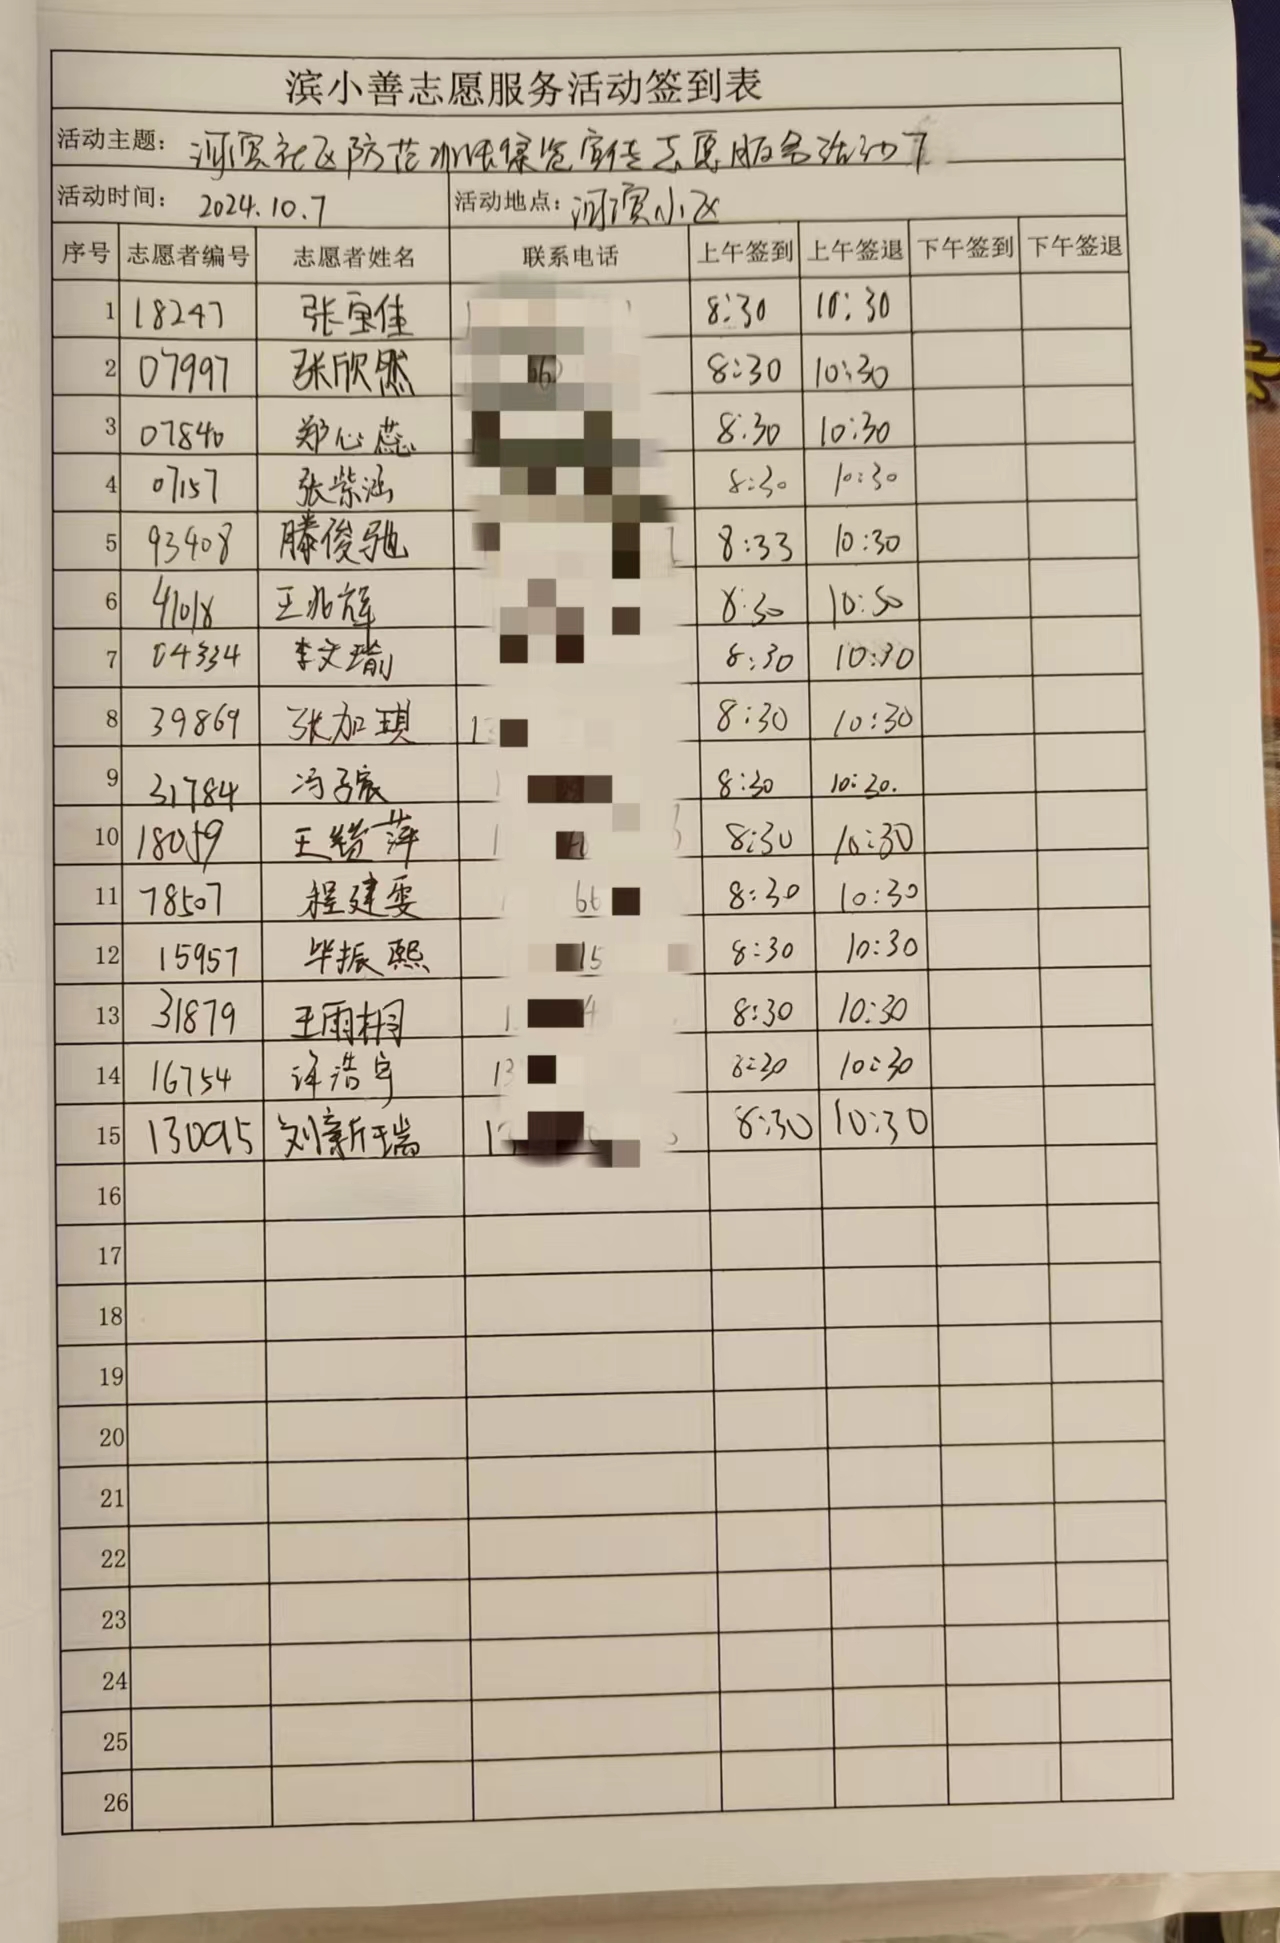 滨小善志愿服务活动签到表
活动主题: 河滨社区防范 宣传志愿服务活动
活动时间: 2024.10.7 活动地点: 河滨小区
序号 志愿者编号 志愿者姓名 联系电话 上午签到 上午签退 下午签到 下午签退
1 18247 张宝佳 8:30 10:30
2 07997 张欣然 8:30 10:30
3 07840 郑心蕊 8:30 10:30
4 07157 张紫涵 8:30 10:30
5 93408 滕俊驰 8:33 10:30
6 41018 王兆辉 8:30 10:30
7 04334 李文瑜 8:30 10:30
8 39869 张加琪 13 8:30 10:30
9 31784 冯子宸 8:30 10:30.
10 18059 王 萍 8:30 10:30
11 78507 程建雯 66 8:30 10:30
12 15957 毕振熙 15 8:30 10:30
13 31879 王雨桐 8:30 10:30
14 16754 许浩宇 13 8:30 10:30
15 130095 刘新瑞 8:30 10:30
16
17
18
19
20
21
22
23
24
25
26